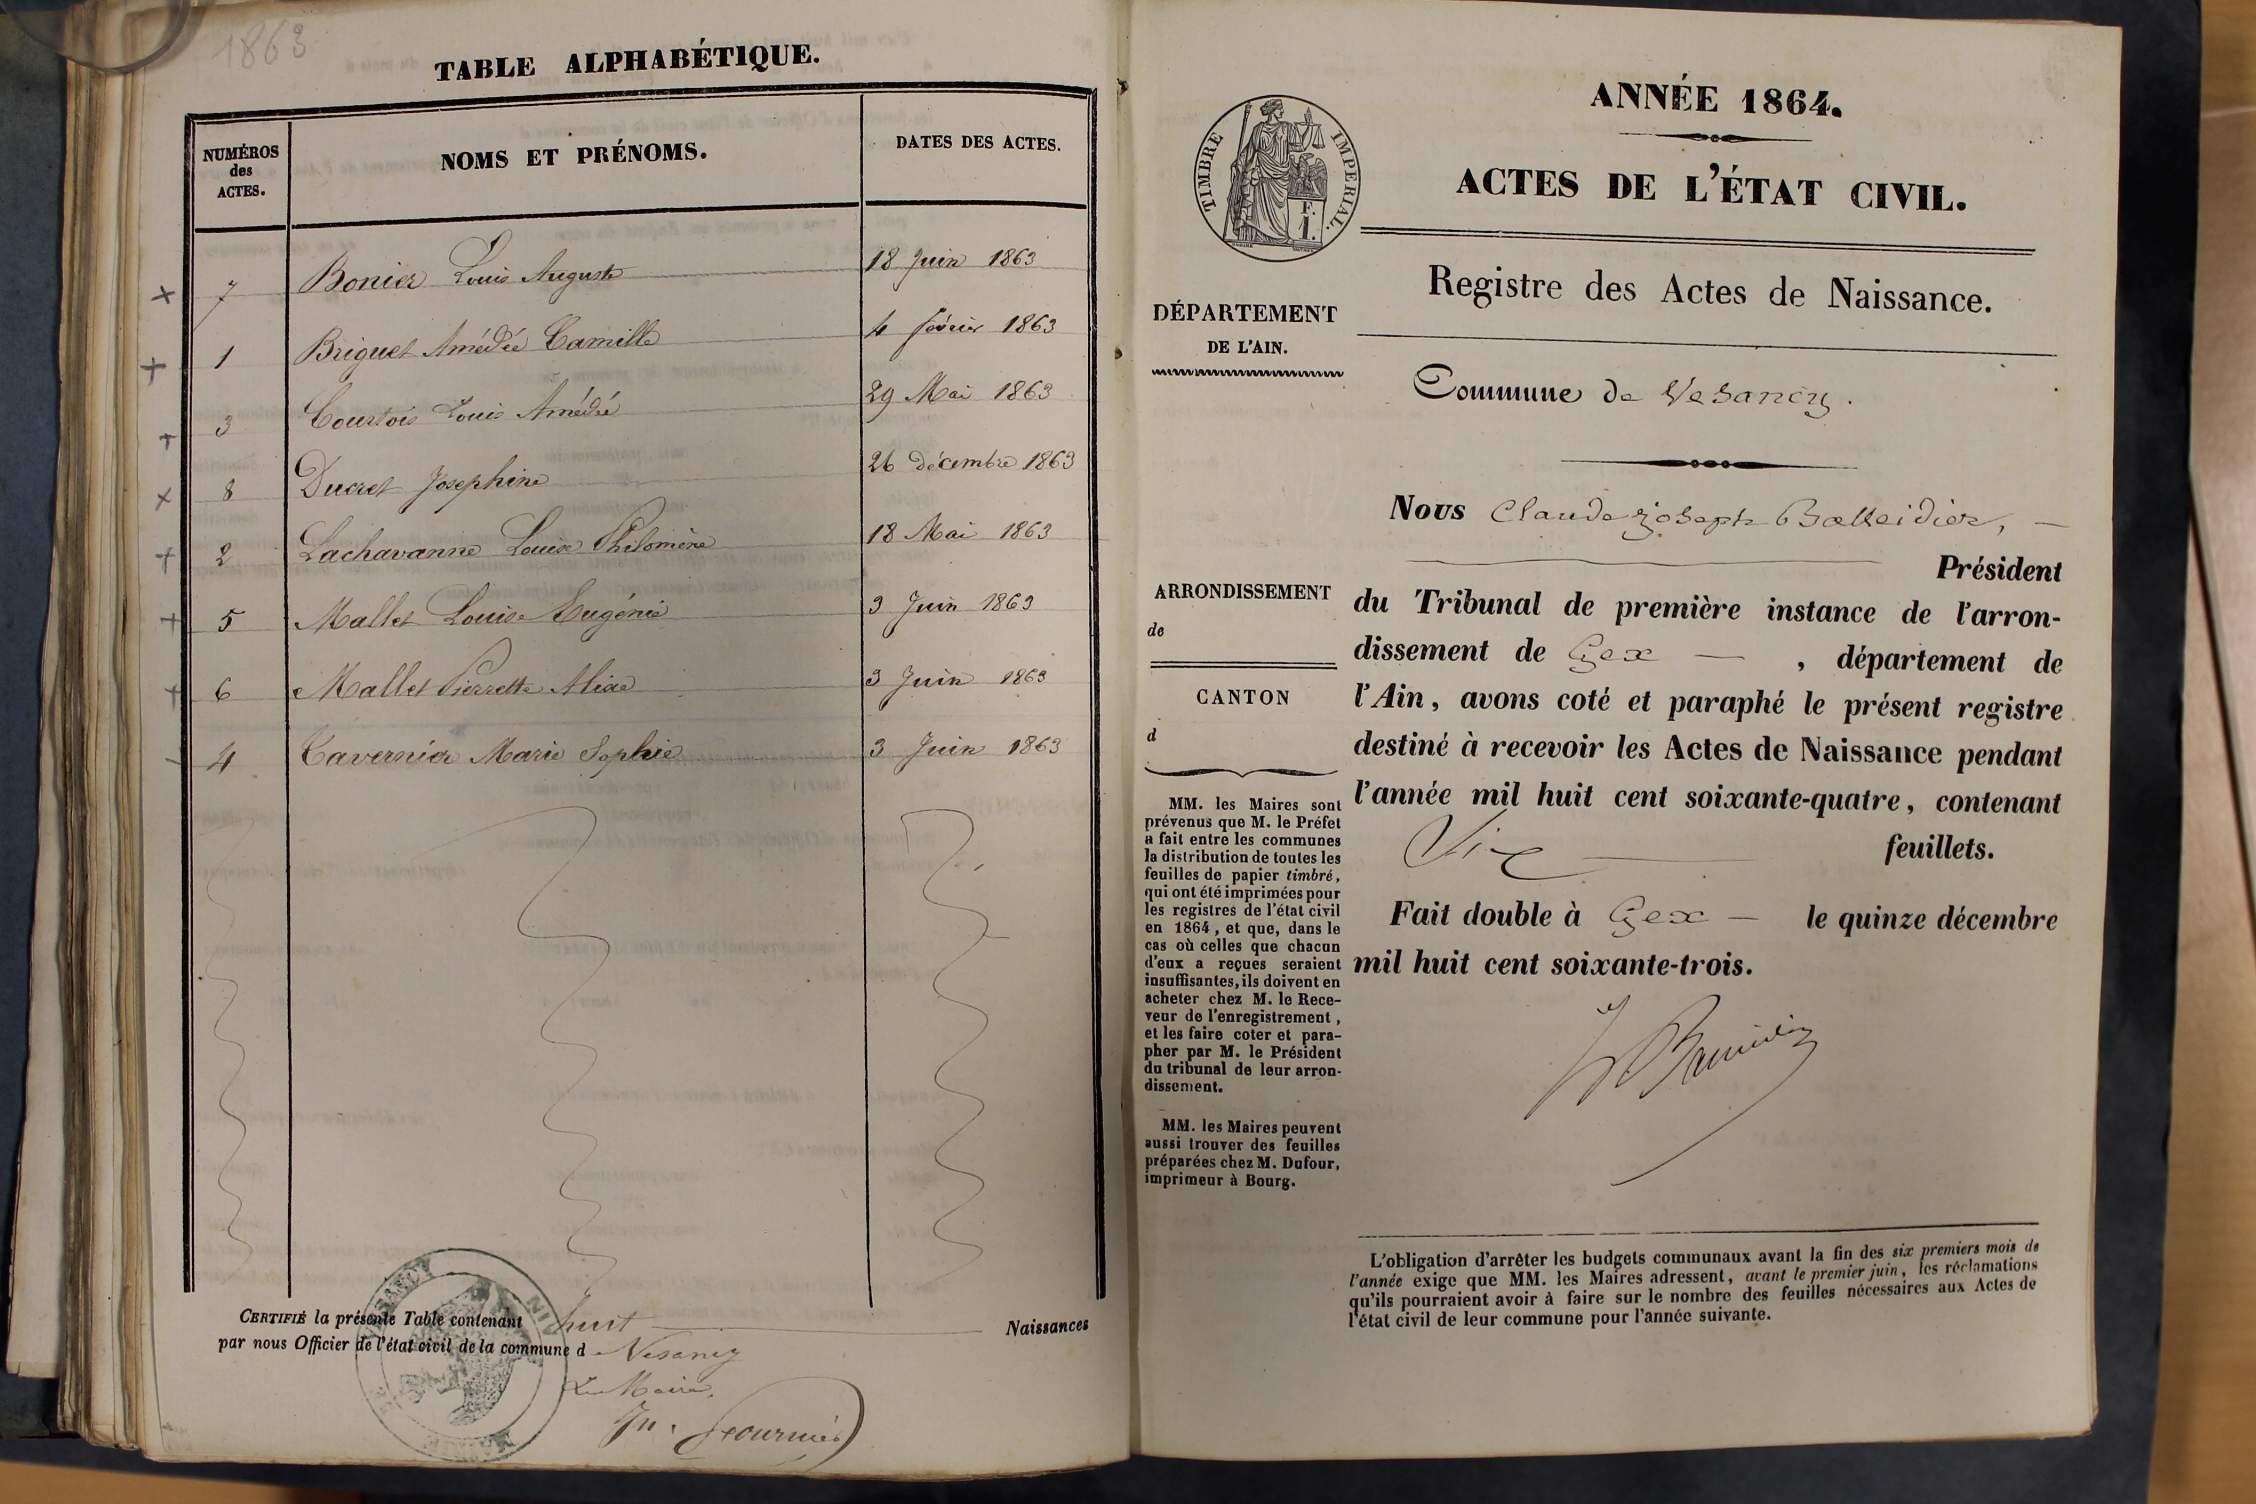 1863
TABLE ALPHABÉTIQUE.
NUMÉROS des ACTES.
NOMS ET PRÉNOMS.
DATES DES ACTES.
7 Bonier Louis Auguste 18 Juin 1863
1 Briguet Amédée Camille 4 février 1863
3 Courtois Louis Amédée 29 Mai 1863
8 Ducret Josephine 26 décembre 1863
2 Lachavanne Louise Philomène 18 Mai 1863
5 Mallet Louise Eugénie 3 Juin 1863
6 Mallet Pierrette Alixe 3 Juin 1863
4 Tavernier Marie Sophie 3 Juin 1863
CERTIFIÉ la présente Table contenant huit Naissances
par nous Officier de l'état civil de la commune d Vesancy
Le Maire,
Fournier
MAIRIE VESANCY
ANNÉE 1864.
ACTES DE L'ÉTAT CIVIL.
TIMBRE IMPÉRIAL.
F.
1.
Registre des Actes de Naissance.
DÉPARTEMENT
DE L'AIN.
Commune de Vesancy.
Nous Claude Joseph Balleidier,
Président
du Tribunal de première instance de l'arron-
dissement de Gex, département de
l'Ain, avons coté et paraphé le présent registre
destiné à recevoir les Actes de Naissance pendant
l'année mil huit cent soixante-quatre, contenant
Six feuillets.
Fait double à Gex le quinze décembre
mil huit cent soixante-trois.
ARRONDISSEMENT
de
CANTON
d
MM. les Maires sont
prévenus que M. le Préfet
a fait entre les communes
la distribution de toutes les
feuilles de papier timbré,
qui ont été imprimées pour
les registres de l'état civil
en 1864, et que, dans le
cas où celles que chacun
d'eux a reçues seraient
insuffisantes, ils doivent en
acheter chez M. le Rece-
veur de l'enregistrement,
et les faire coter et para-
pher par M. le Président
du tribunal de leur arron-
dissement.
MM. les Maires peuvent
aussi trouver des feuilles
préparées chez M. Dufour,
imprimeur à Bourg.
L'obligation d'arrêter les budgets communaux avant la fin des six premiers mois de
l'année exige que MM. les Maires adressent, avant le premier juin, les réclamations
qu'ils pourraient avoir à faire sur le nombre des feuilles nécessaires aux Actes de
l'état civil de leur commune pour l'année suivante.